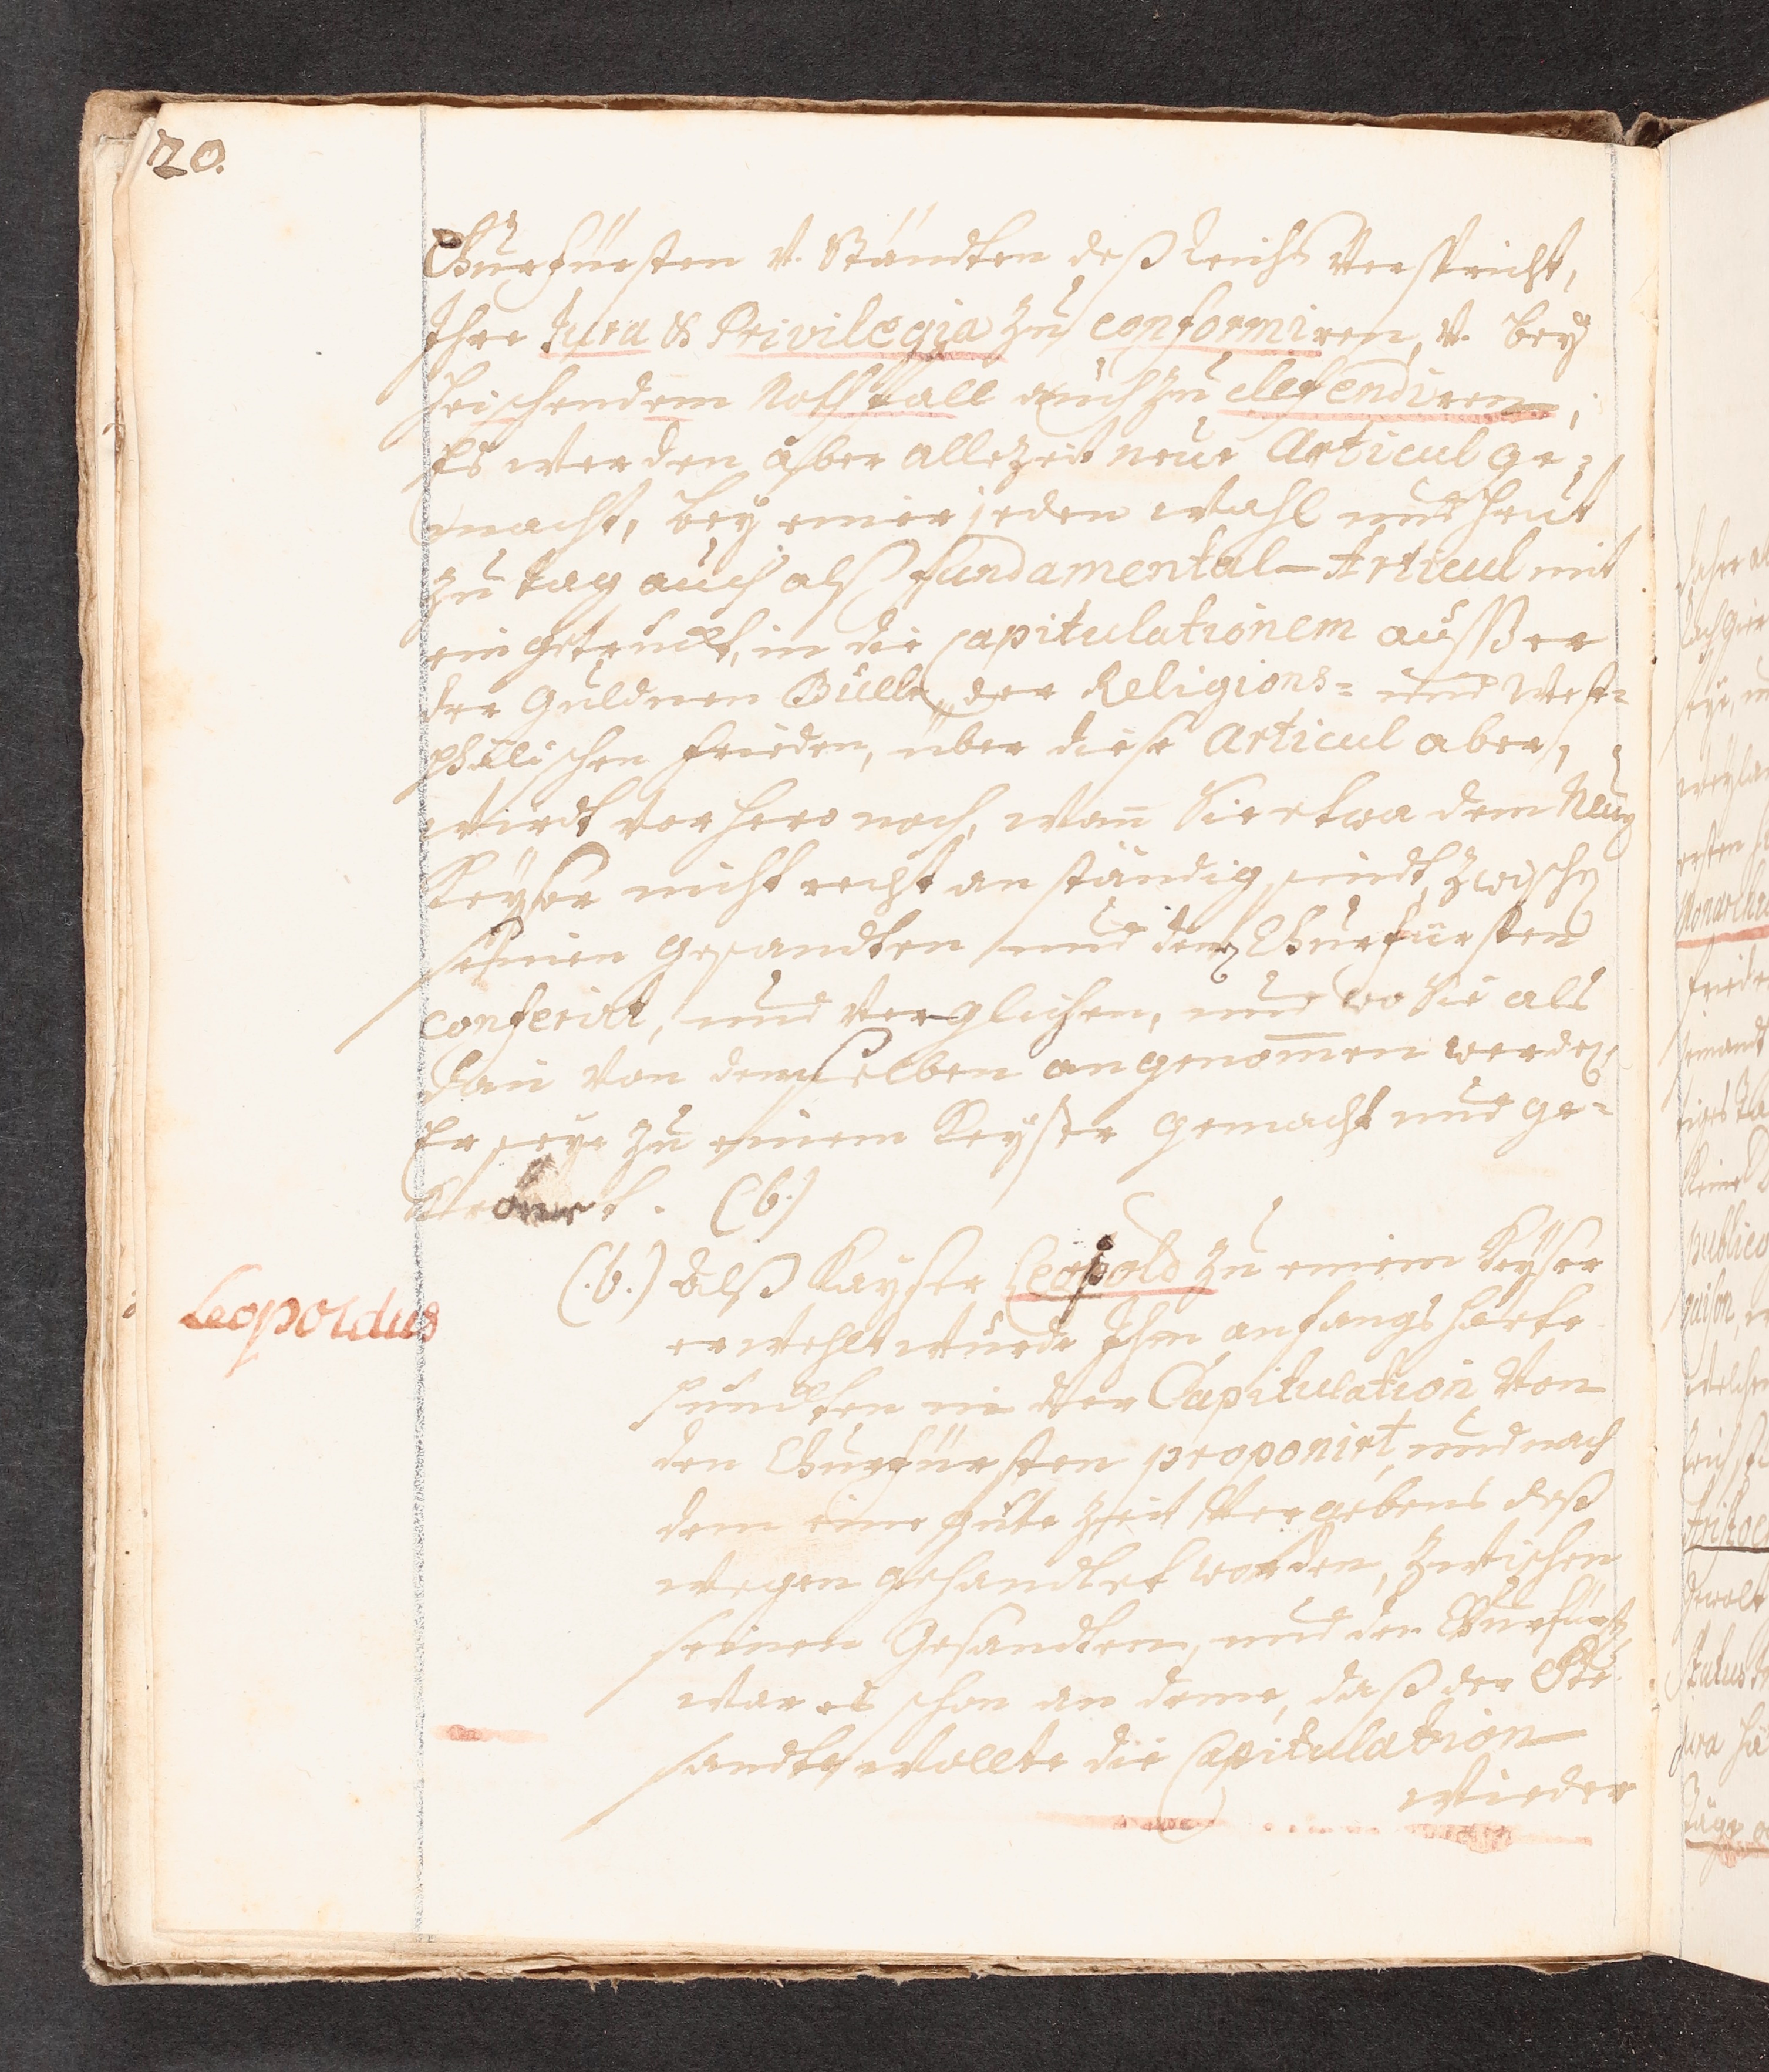 20.
Churfürsten v. Ständten deß Reichs verspricht,
Ihre Jura & Privilegia zu conformiren, v. bey
heischendem Nothfall auch zu defendiren;
Es werden aber allezeit neue Articul ge-
macht, bey einer jeden Wahl und heut
zu tag auch alß fundamental-Articul mit
eingetruckt, in die capitulationem ausser
der Guldnen Bulle, der Religions- und West-
phälischen Frieden, über diese Articul aber,
wirdt vorhero noch, wan Sie etwa dem Neuen
Keyser nicht recht anständig sindt, zwischen
seinen gesandten und den Churfürsten
conferirt, und verglichen, und wo Sie als
dan von demselben angenommen werden,
Er seye zu einem Keyser gemacht und ge-
krönet. (b.)
(b.) Alß Kayser Leopold zu einem Keyser
erwehlt wurde Ihm anfangs harte
puncten in der Capitulation von
den Churfürsten proponirt, und nach
dem eine gute Zeit vergebens deß
wegen gehandlet worden, zwischen
seinen Gesandten, und den Churfürsten
war es schon an deme, daß der Ge-
sandte wollte die Capitulation
wieder
Leopoldus